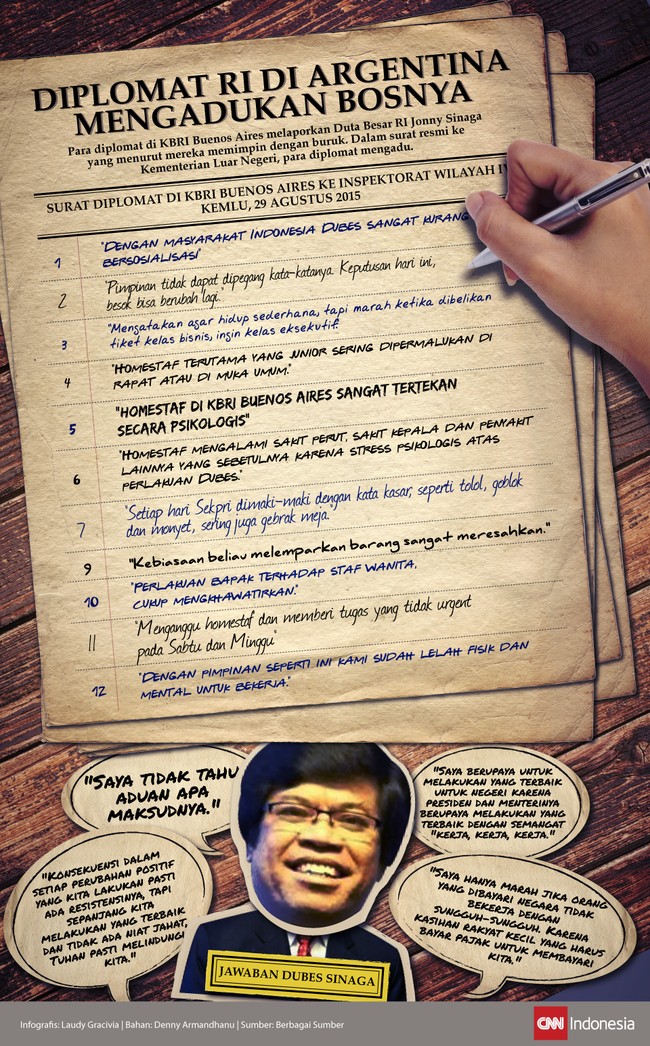 DIPLOMAT RI DI ARGENTINA
MENGADUKAN BOSNYA
Para diplomat di KBRI Buenos Aires melaporkan Duta Besar RI Jonny Sinaga
yang menurut mereka memimpin dengan buruk. Dalam surat resmi ke
Kementerian Luar Negeri, para diplomat mengadu.
SURAT DIPLOMAT DI KBRI BUENOS AIRES KE INSPEKTORAT WILAYAH
KEMLU, 29 AGUSTUS 2015
1 "DENGAN MASYARAKAT INDONESIA DUBES SANGAT KURANG
BERSOSIALISASI"
2 "Pimpinan tidak dapat dipegang kata-katanya. Keputusan hari ini,
besok bisa berubah lagi."
3 "Mengatakan agar hidup sederhana, tapi marah ketika dibelikan
tiket kelas bisnis, ingin kelas eksekutif."
4 "HOMESTAF TERUTAMA YANG JUNIOR SERING DIPERMALUKAN DI
RAPAT ATAU DI MUKA UMUM."
5 "HOMESTAF DI KBRI BUENOS AIRES SANGAT TERTEKAN
SECARA PSIKOLOGIS"
6 "HOMESTAF MENGALAMI SAKIT PERUT, SAKIT KEPALA DAN PENYAKIT
LAINNYA YANG SEBETULNYA KARENA STRESS PSIKOLOGIS ATAS
PERLAKUAN DUBES."
7 "Setiap hari Sekpri dimaki-maki dengan kata kasar, seperti tolol, goblok
dan monyet, sering juga gebrak meja."
9 "Kebiasaan beliau melemparkan barang sangat meresahkan."
10 "PERLAKUAN BAPAK TERHADAP STAF WANITA,
CUKUP MENGKHAWATIRKAN."
11 "Menganggu homestaf dan memberi tugas yang tidak urgent
pada Sabtu dan Minggu"
12 "DENGAN PIMPINAN SEPERTI INI KAMI SUDAH LELAH FISIK DAN
MENTAL UNTUK BEKERJA."
"SAYA TIDAK TAHU
ADUAN APA
MAKSUDNYA."
"SAYA BERUPAYA UNTUK
MELAKUKAN YANG TERBAIK
UNTUK NEGERI KARENA
PRESIDEN DAN MENTERINYA
BERUPAYA MELAKUKAN YANG
TERBAIK DENGAN SEMANGAT
"KERJA, KERJA, KERJA."
"KONSEKUENSI DALAM
SETIAP PERUBAHAN POSITIF
YANG KITA LAKUKAN PASTI
ADA RESISTENSINYA, TAPI
SEPANJANG KITA
MELAKUKAN YANG TERBAIK
DAN TIDAK ADA NIAT JAHAT,
TUHAN PASTI MELINDUNGI
KITA."
"SAYA HANYA MARAH JIKA ORANG
YANG DIBAYARI NEGARA TIDAK
BEKERJA DENGAN
SUNGGUH-SUNGGUH. KARENA
KASIHAN RAKYAT KECIL YANG HARUS
BAYAR PAJAK UNTUK MEMBAYARI
KITA."
JAWABAN DUBES SINAGA
Infografis: Laudy Gracivia | Bahan: Denny Armandhanu | Sumber: Berbagai Sumber
CNN Indonesia